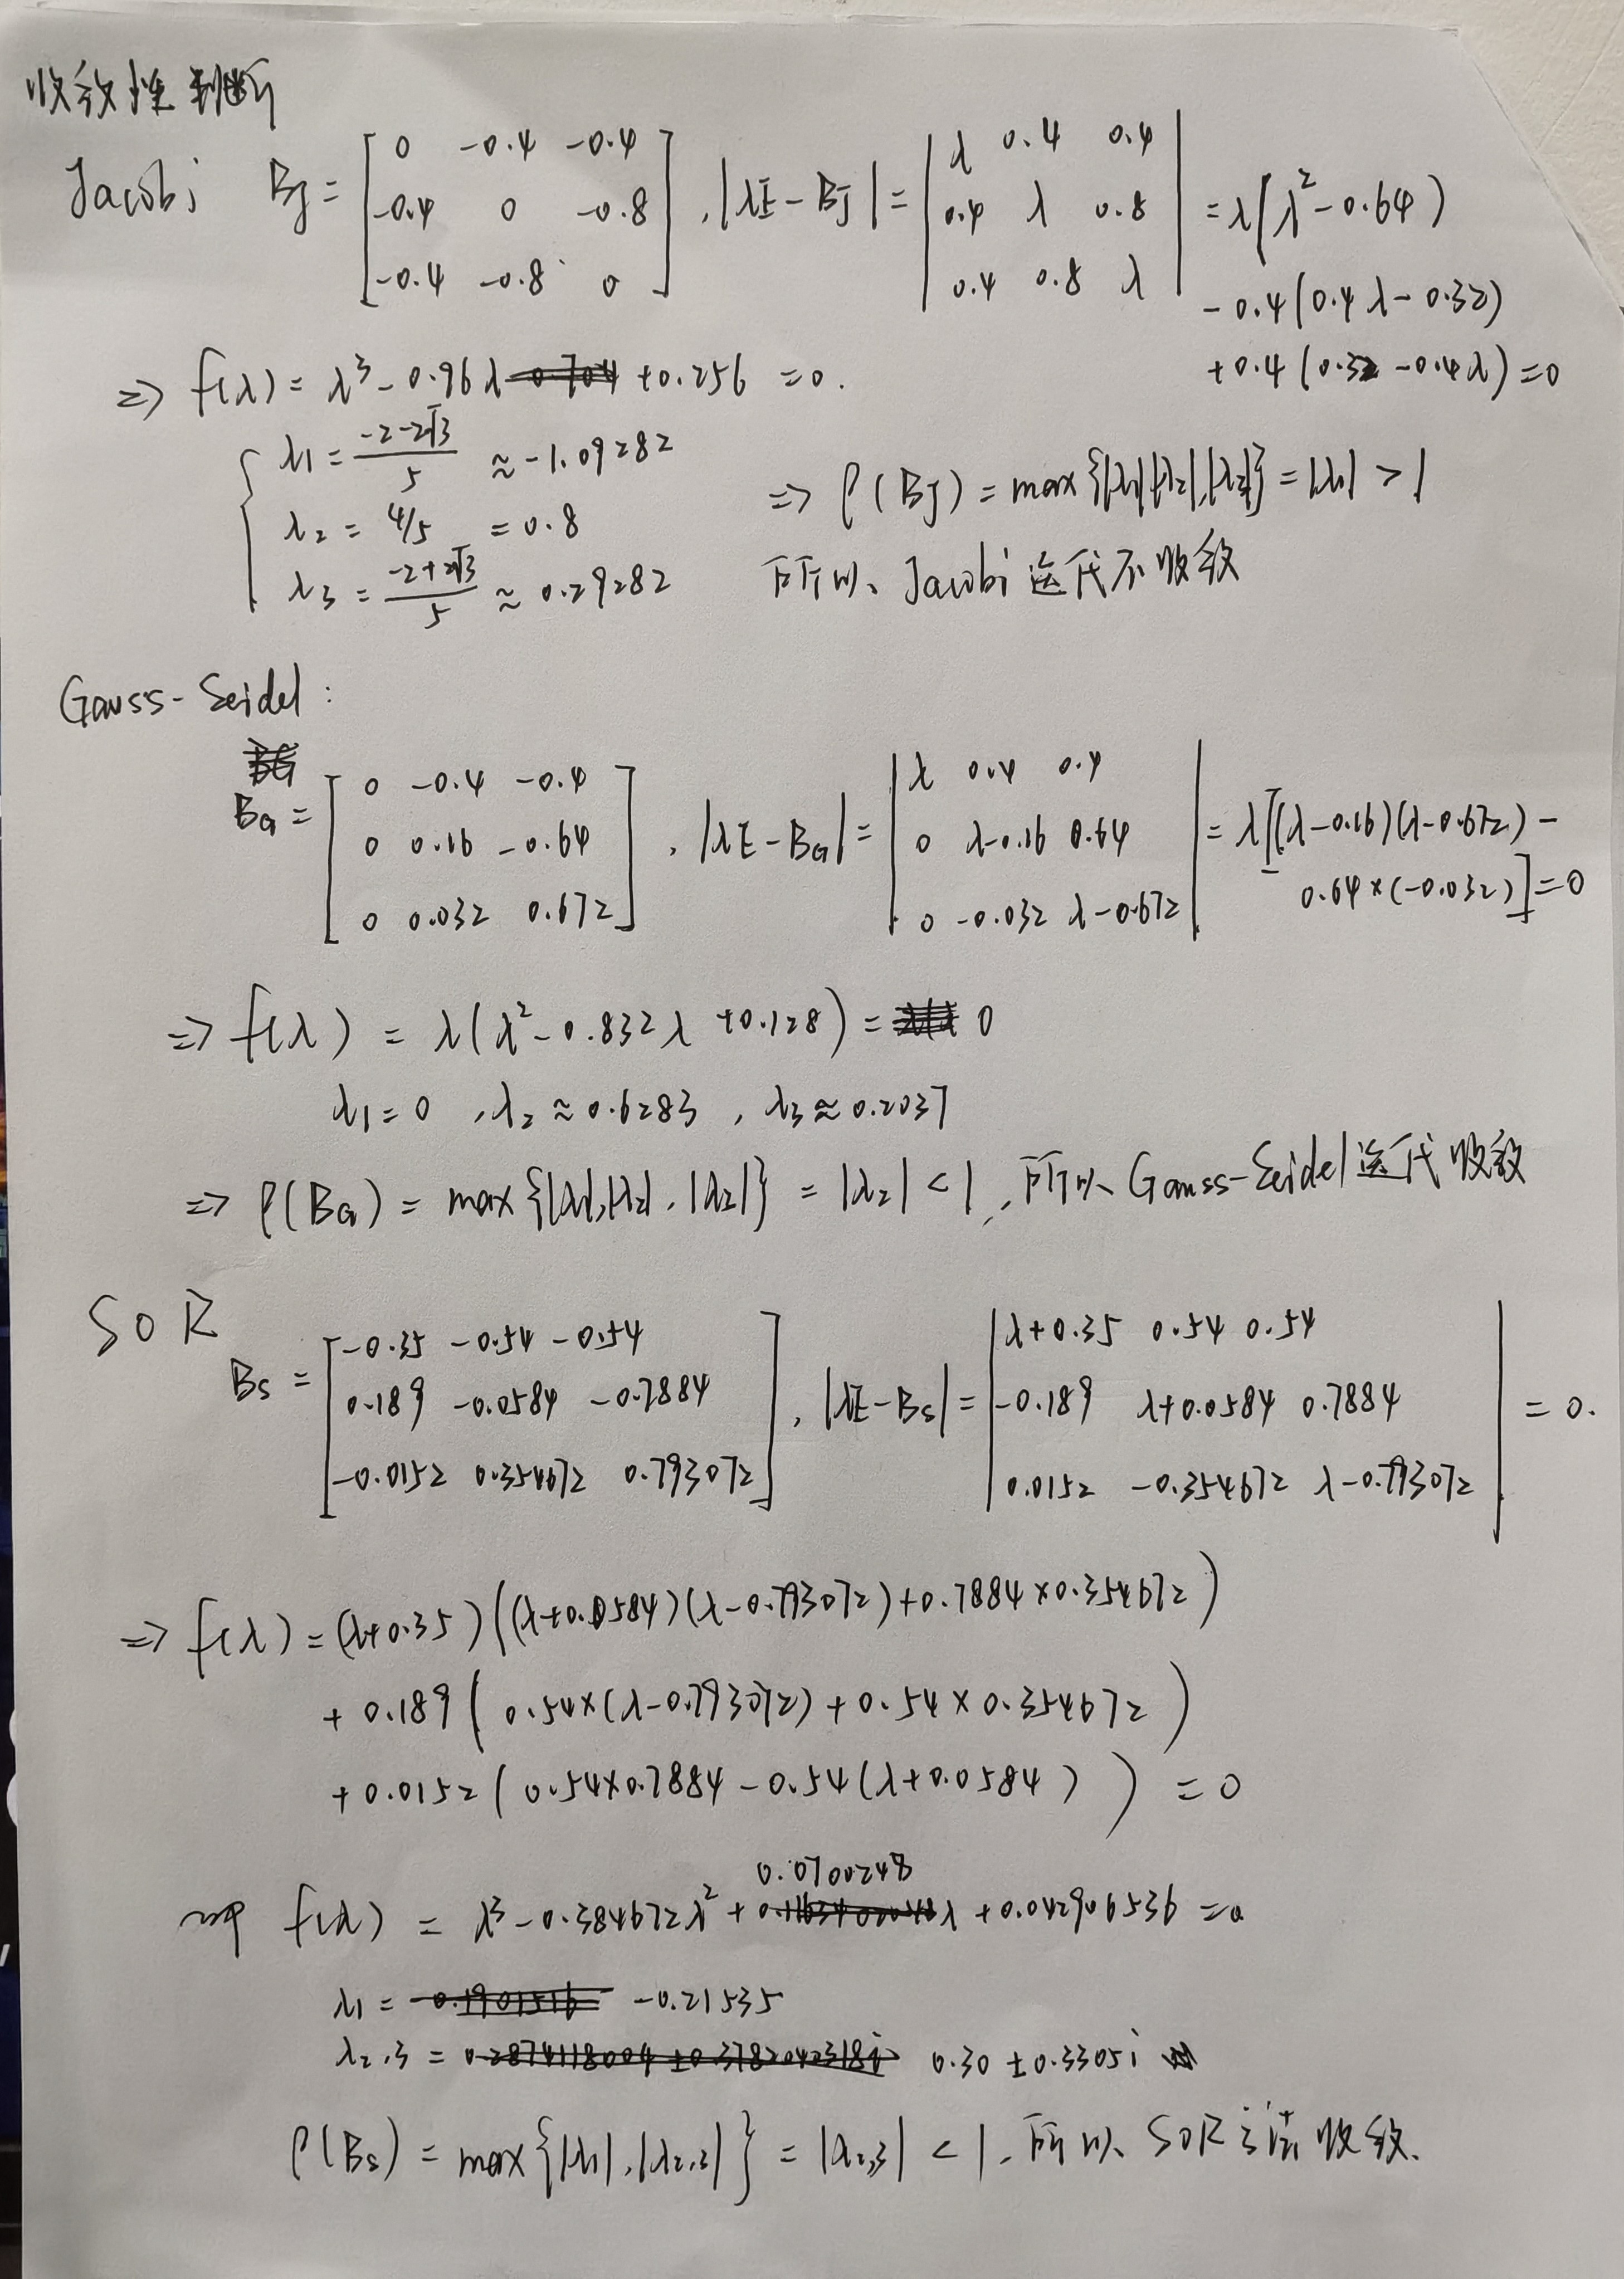 收敛性判断
Jacobi B_J = [0 -0.4 -0.4; -0.4 0 -0.8; -0.4 -0.8 0], |λE-B_J| = |λ 0.4 0.4; 0.4 λ 0.8; 0.4 0.8 λ| = λ(λ²-0.64)
-0.4(0.4λ-0.32)
+0.4(0.32-0.4λ)=0
=> f(λ) = λ³-0.96λ+0.256 =0.
λ1 = (-2-2√3)/5 ≈ -1.09282
λ2 = 4/5 = 0.8
λ3 = (-2+2√3)/5 ≈ 0.29282
=> ρ(B_J) = max{|λ1|,|λ2|,|λ3|} = |λ1| > 1
所以、Jacobi 迭代不收敛
Gauss-Seidel:
B_G = [0 -0.4 -0.4; 0 0.16 -0.64; 0 0.032 0.672], |λE-B_G| = |λ 0.4 0.4; 0 λ-0.16 0.64; 0 -0.032 λ-0.672| = λ[(λ-0.16)(λ-0.672)-
0.64×(-0.032)]=0
=> f(λ) = λ(λ²-0.832λ+0.128) = 0
λ1=0, λ2≈0.6283, λ3≈0.2037
=> ρ(B_G) = max{|λ1|,|λ2|,|λ3|} = |λ2| < 1, 所以 Gauss-Seidel 迭代收敛
SOR
B_S = [-0.35 -0.54 -0.54; 0.189 -0.0584 -0.7884; -0.0152 0.354672 0.793072], |λE-B_S| = |λ+0.35 0.54 0.54; -0.189 λ+0.0584 0.7884; 0.0152 -0.354672 λ-0.793072| = 0.
=> f(λ) = (λ+0.35)((λ+0.0584)(λ-0.793072)+0.7884×0.354672)
+0.189(0.54×(λ-0.793072)+0.54×0.354672)
+0.0152(0.54×0.7884-0.54(λ+0.0584)) = 0
即 f(λ) = λ³-0.384672λ²+0.0700248λ+0.042906536=0
λ1 = -0.21535
λ2,3 = 0.30±0.3305i
ρ(B_S) = max{|λ1|,|λ2,3|} = |λ2,3| < 1, 所以 SOR 方法 收敛.